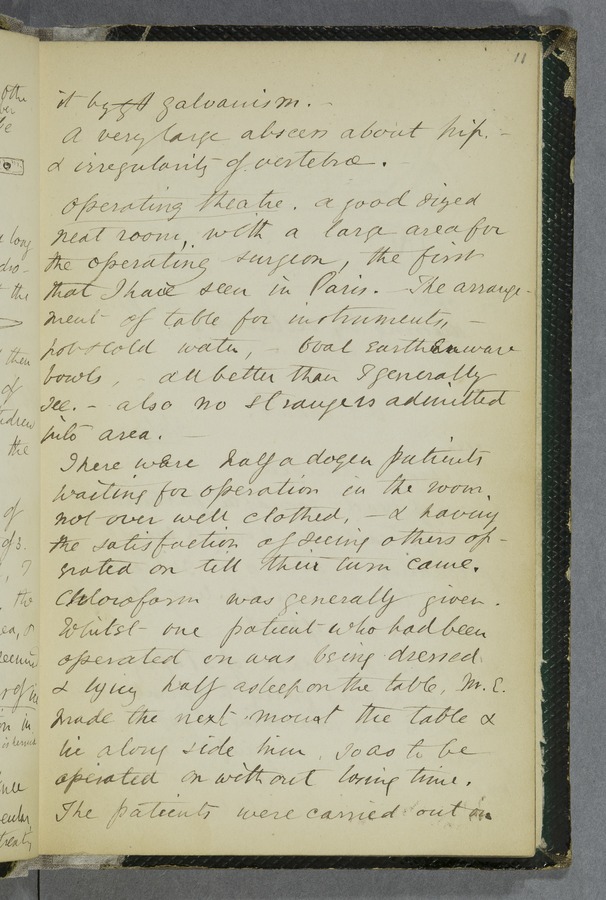 11
it by galvanism. -
A very large abscess about hip. -
& irregularity of vertebræ.
Operating theatre. a good sized
neat room, with a large area for
the operating surgeon, the first
that I have seen in Paris. - The arrange-
ment of table for instruments, -
hot & cold water, - oval earthenware
bowls, - all better than I generally
see. - also no strangers admitted
into area. -
There were half a dozen patients
waiting for operation in the room,
not over well clothed, - & having
the satisfaction of seeing others op-
erated on till their turn came.
Chloroform was generally given.
Whilst one patient who had been
operated on was being dressed
& lying half asleep on the table, M. E.
made the next mount the table &
lie along side him, so as to be
operated on without losing time.
The patients were carried out on